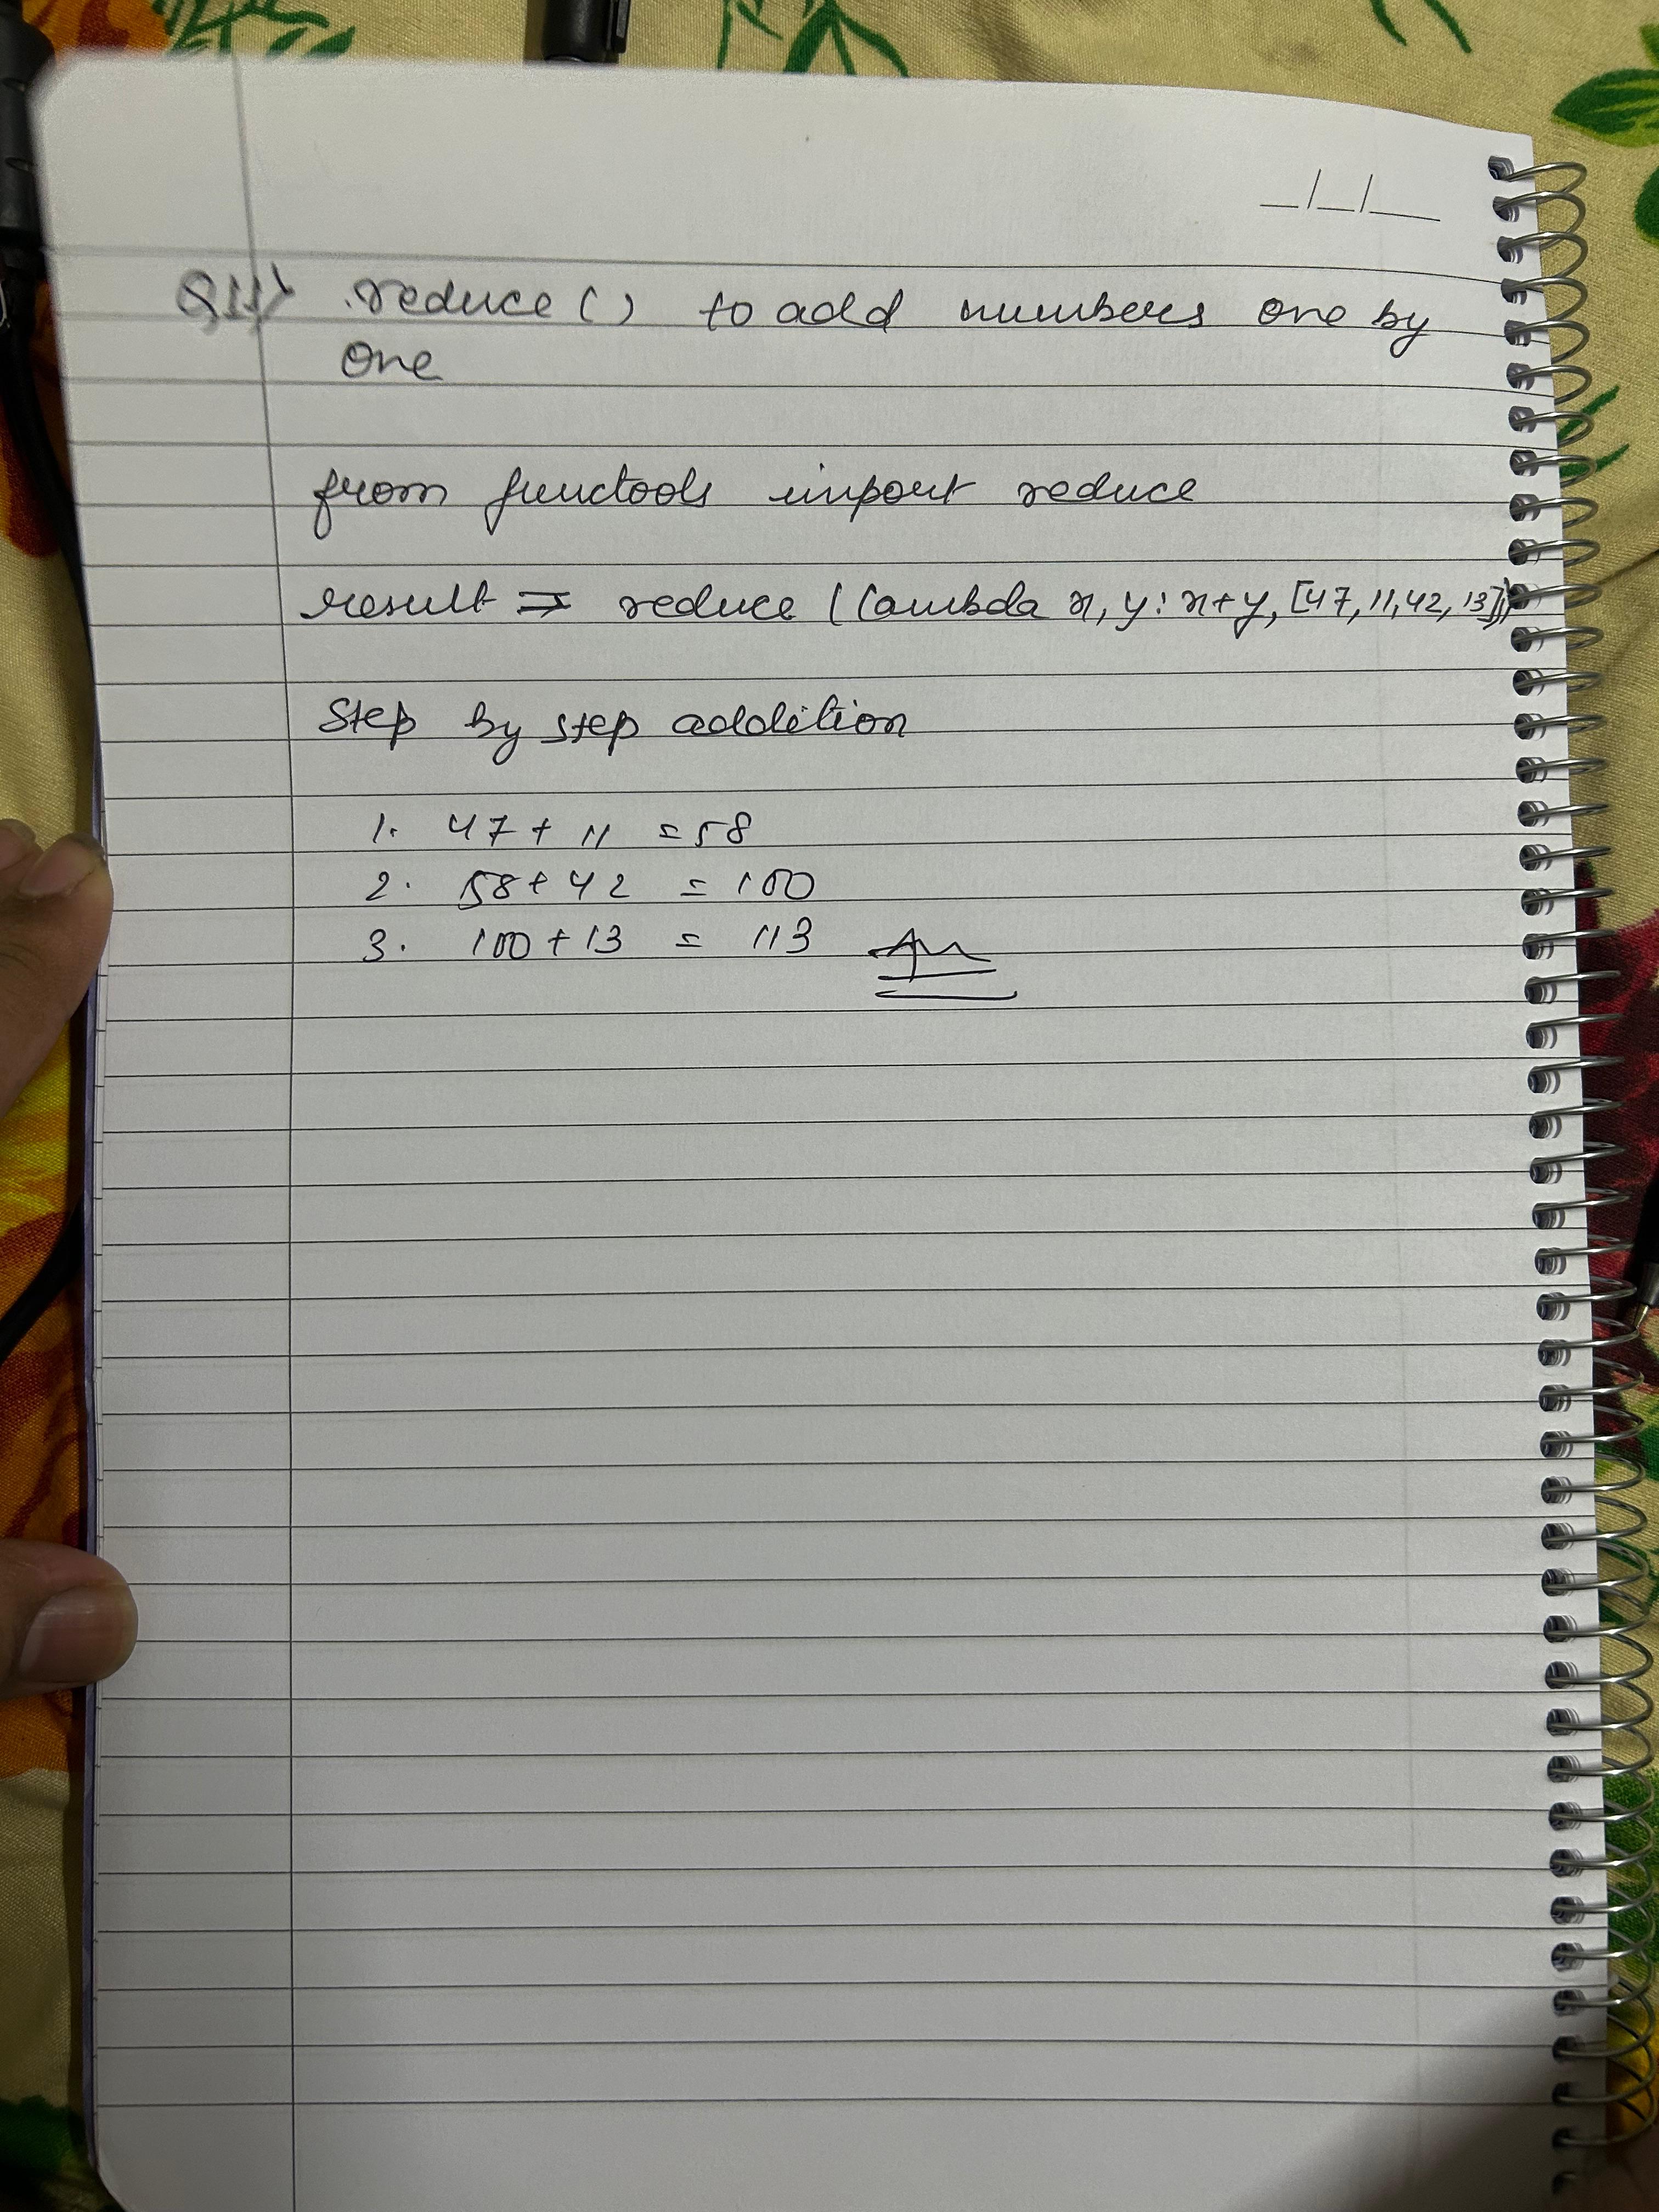 _/_/__
Q11> reduce() to add numbers one by
one
from functools import reduce
result = reduce (lambda x, y: x+y, [47, 11, 42, 13])
Step by step addition
1. 47 + 11 = 58
2. 58 + 42 = 100
3. 100 + 13 = 113 Ans